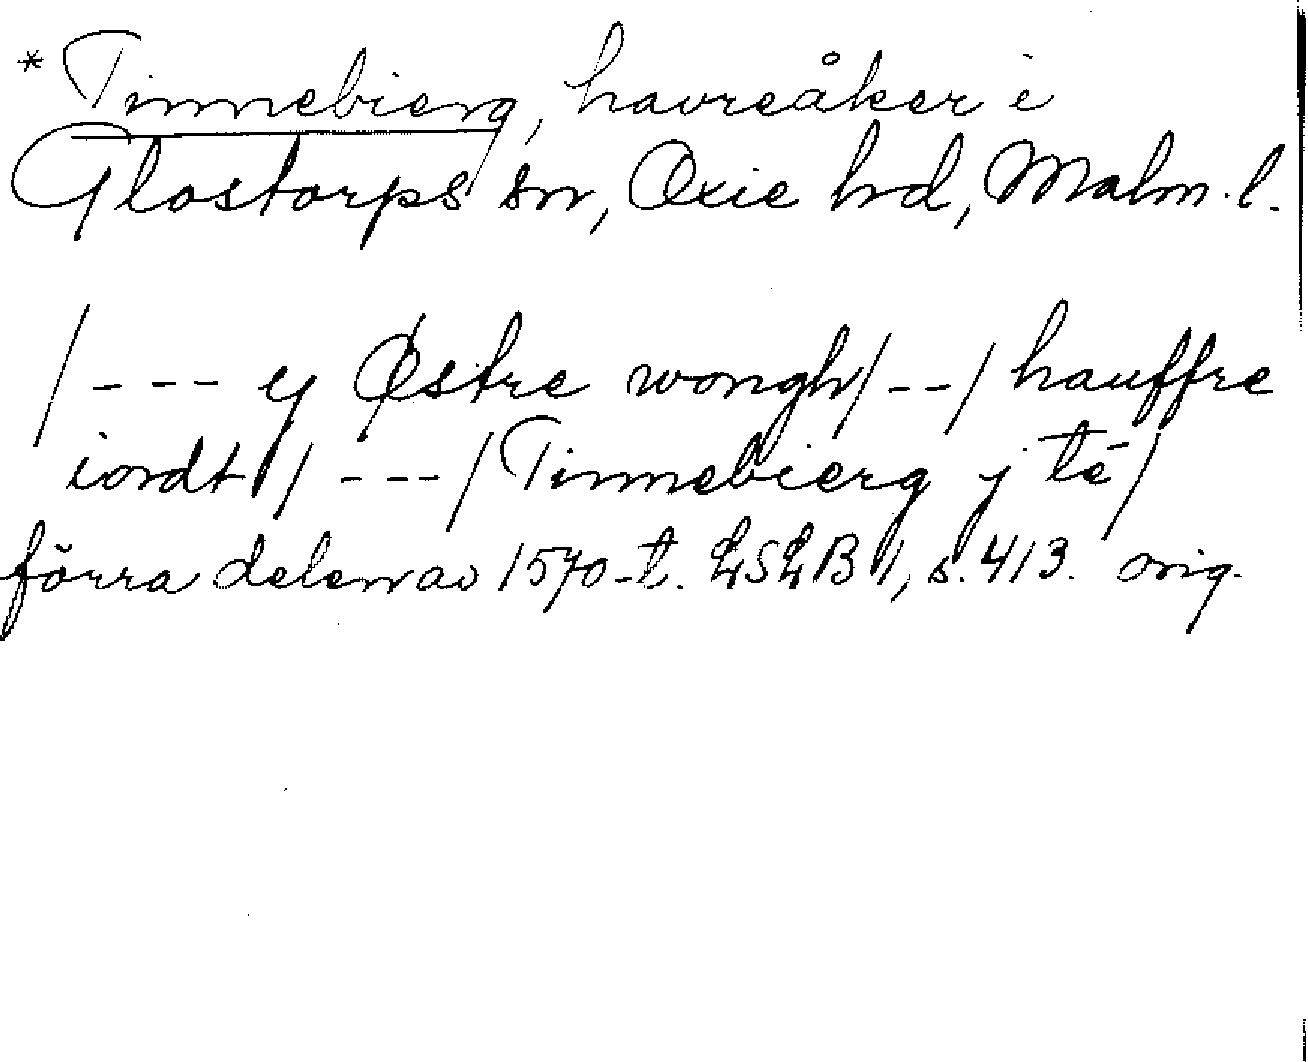 *Tinnebierg, havreåker i
Glostorps sn, Oxie hd, Malm. l.
/--- y Østre wongh/--/ hauffre
iordt // ---/ Tinnebierg j té/
förra delen av 1570-t. LSLB 1, s. 413. orig.